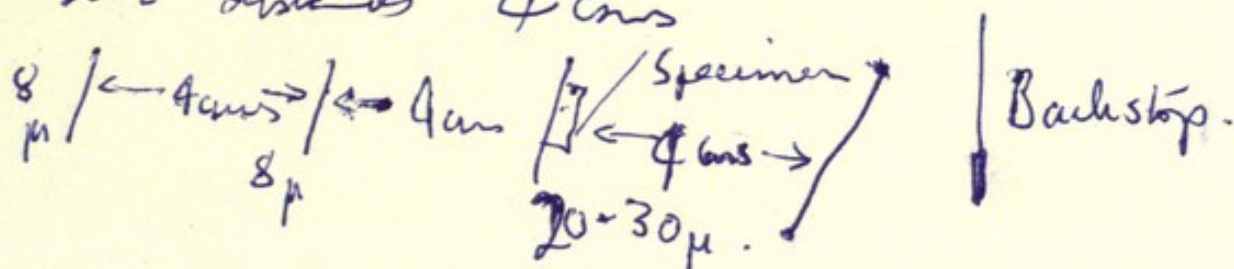 4 cms
8 μ ← 4 cms → ← 4 cms Specimen Backstop.
8 μ ← 4 cms →
20-30 μ.